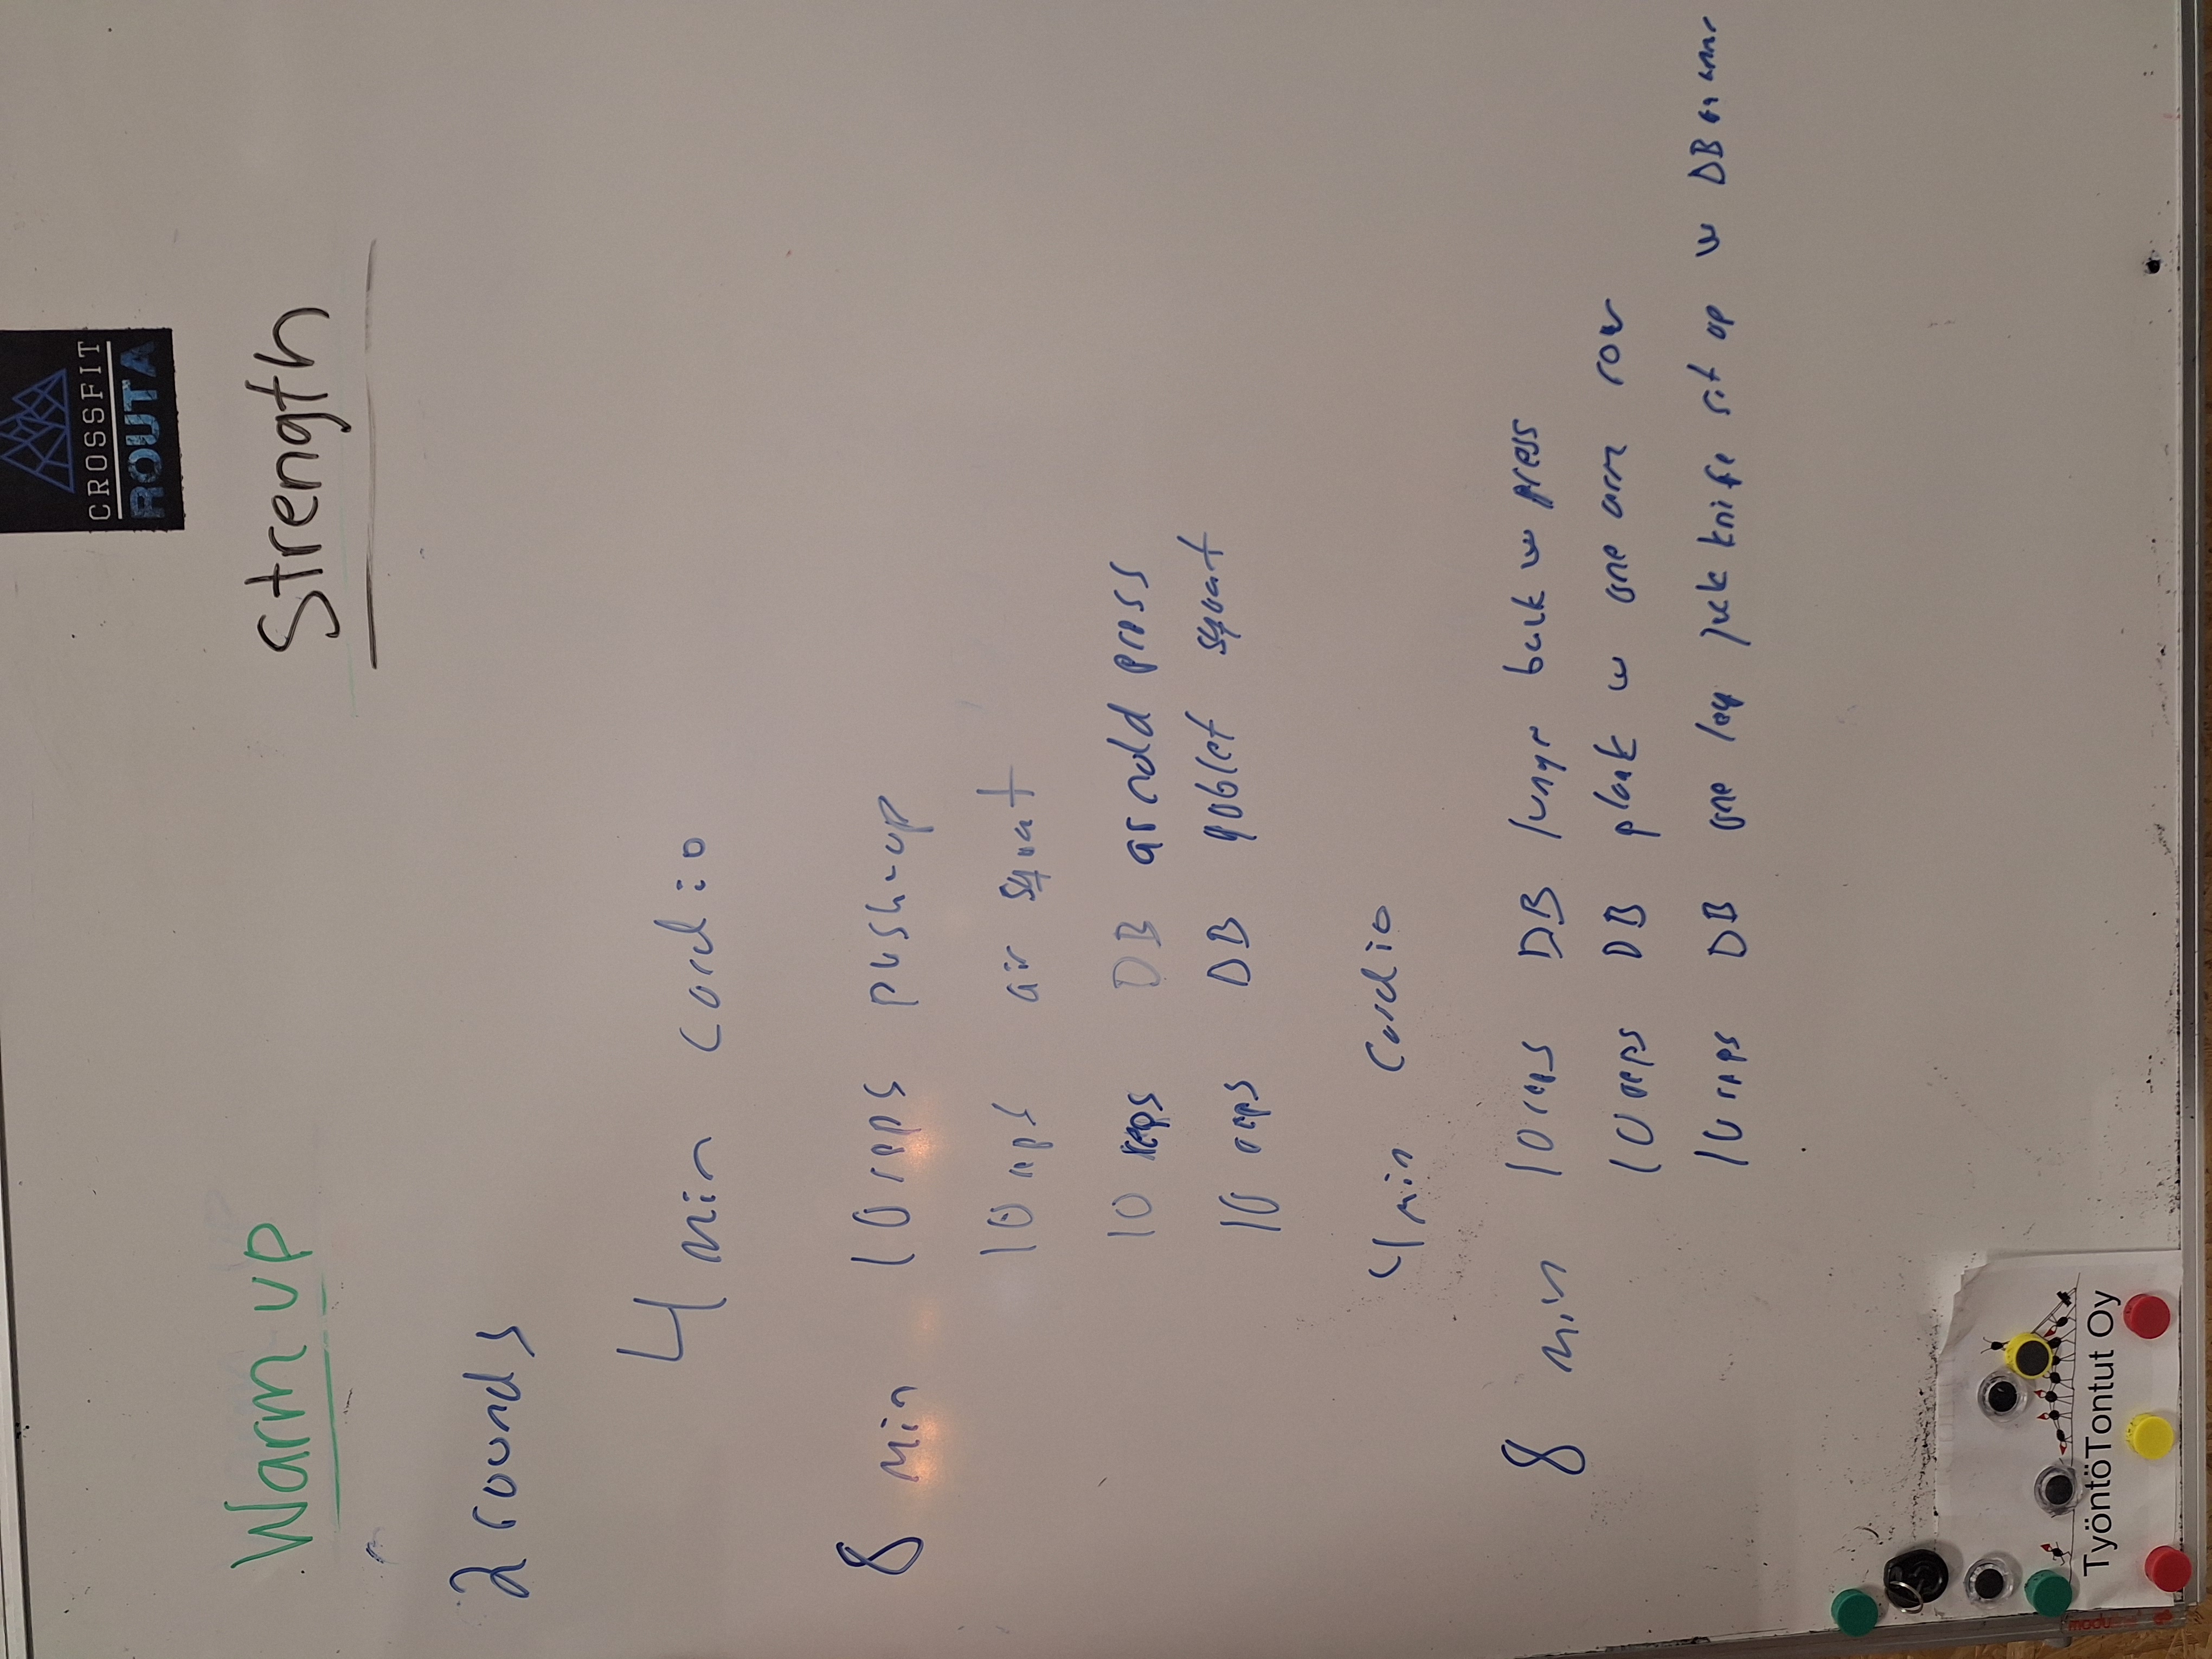 CROSSFIT
ROUTA
Warm up
Strength
2 rounds
4 min cardio
8 min 10 reps push-up
10 reps air squat
10 reps DB arnold press
10 reps DB goblet squat
4 min cardio
8 min 10 reps DB lunge back w press
10 reps DB plank w one arm row
10 reps DB one leg jack knife sit up w DB
TyöntöTontut Oy